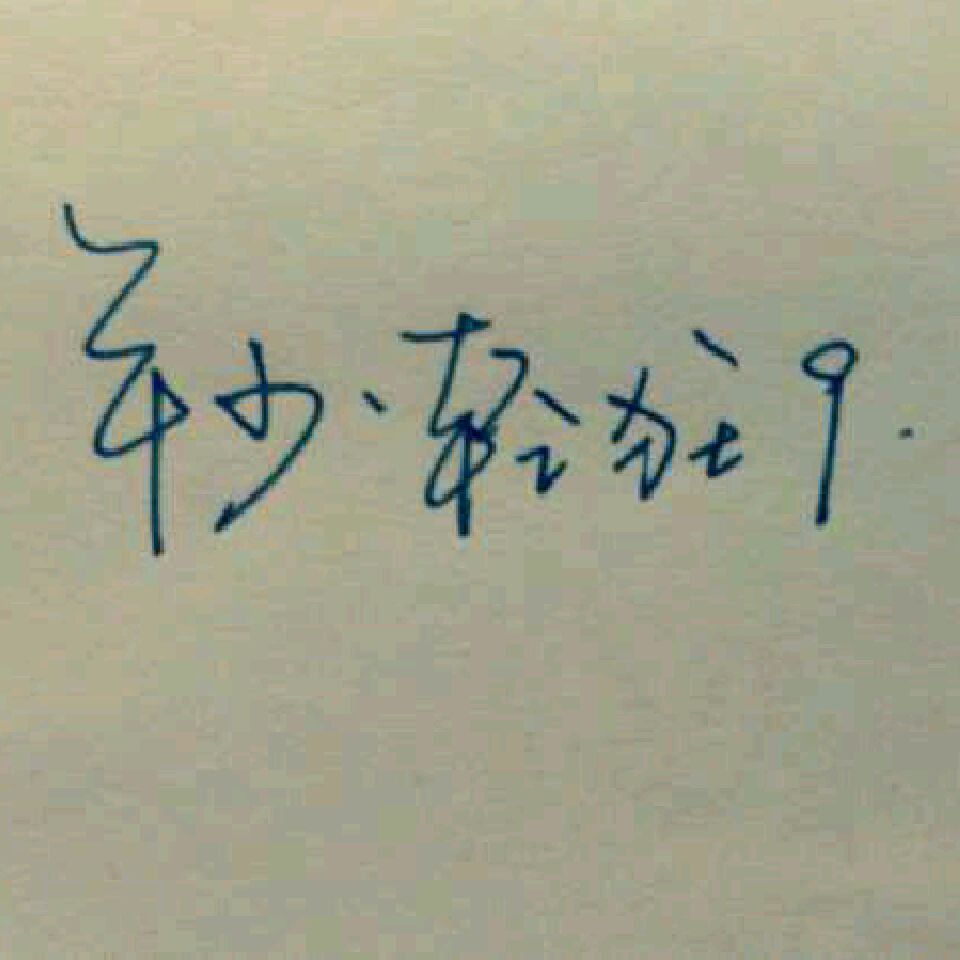 年少、轻狂9.